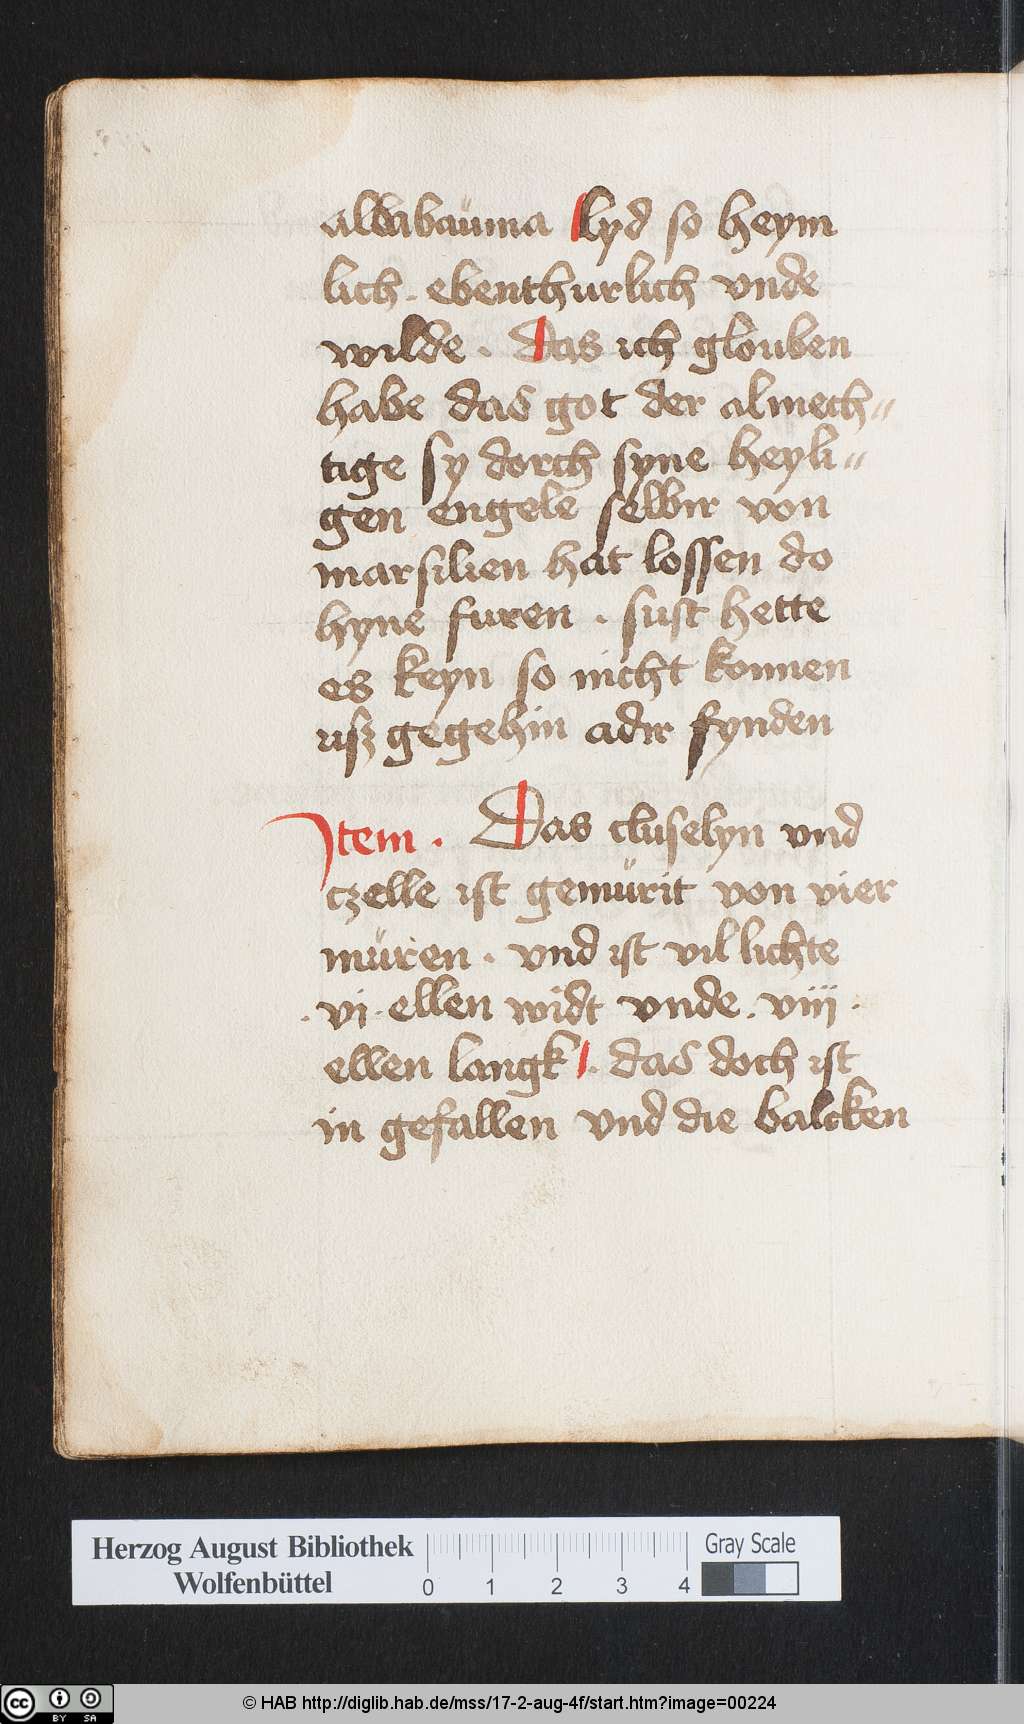 allbabauma lyd so heym
lich . ebenthurlich vnde
wilde . das ich glouben
habe das got der almech〃
tige sy dorch syne heyli〃
gen engele selbir von
marsilien hat lossen do
hyne furen . sust hette
es keyn so nicht konnen
usz gegehin adir fynden
Item . Das cluselyn vnd
czelle ist gemürit von vier
müren . vnd ist vil lichte
. vi . ellen widt vnde . viij .
ellen langk . das doch ist
in gefallen vnd die balcken
Herzog August Bibliothek
Wolfenbüttel
0 1 2 3 4
Gray Scale
cc BY SA
© HAB http://diglib.hab.de/mss/17-2-aug-4f/start.htm?image=00224